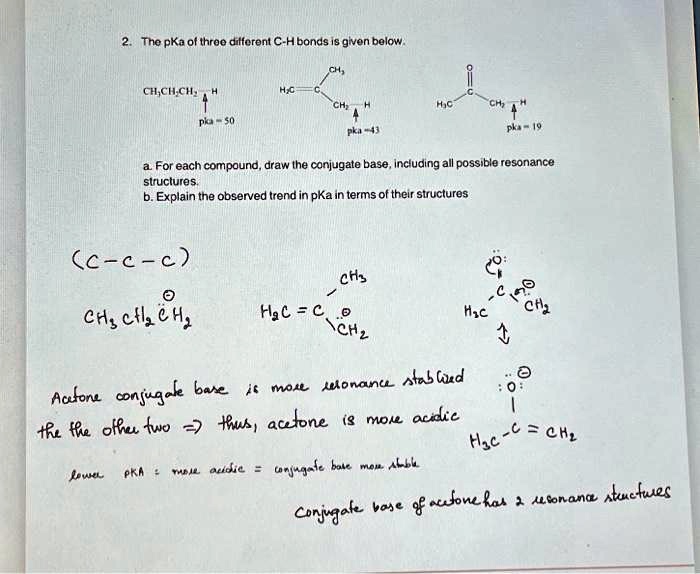 2. The pKa of three different C-H bonds is given below.
CH₃CH₂CH₂ H
pka = 50
H₂C C CH₃ CH₂ H
pka =43
O
H₃C C CH₂ H
pka = 19
a. For each compound, draw the conjugate base, including all possible resonance
structures.
b. Explain the observed trend in pKa in terms of their structures
(C-C-C)
CH₃ CH₂ C̈ H₂ ⊖
CH₃
H₂C = C
:⊖
CH₂
:O:
C ⊖
H₃C CH₂
↕
:O: ⊖
H₃C - C = CH₂
Acetone conjugate base is more resonance stablized
the the other two => thus, acetone is more acidic
lower pKA : more acidic = conjugate base more stable
Conjugate base of acetone has 2 resonance structures